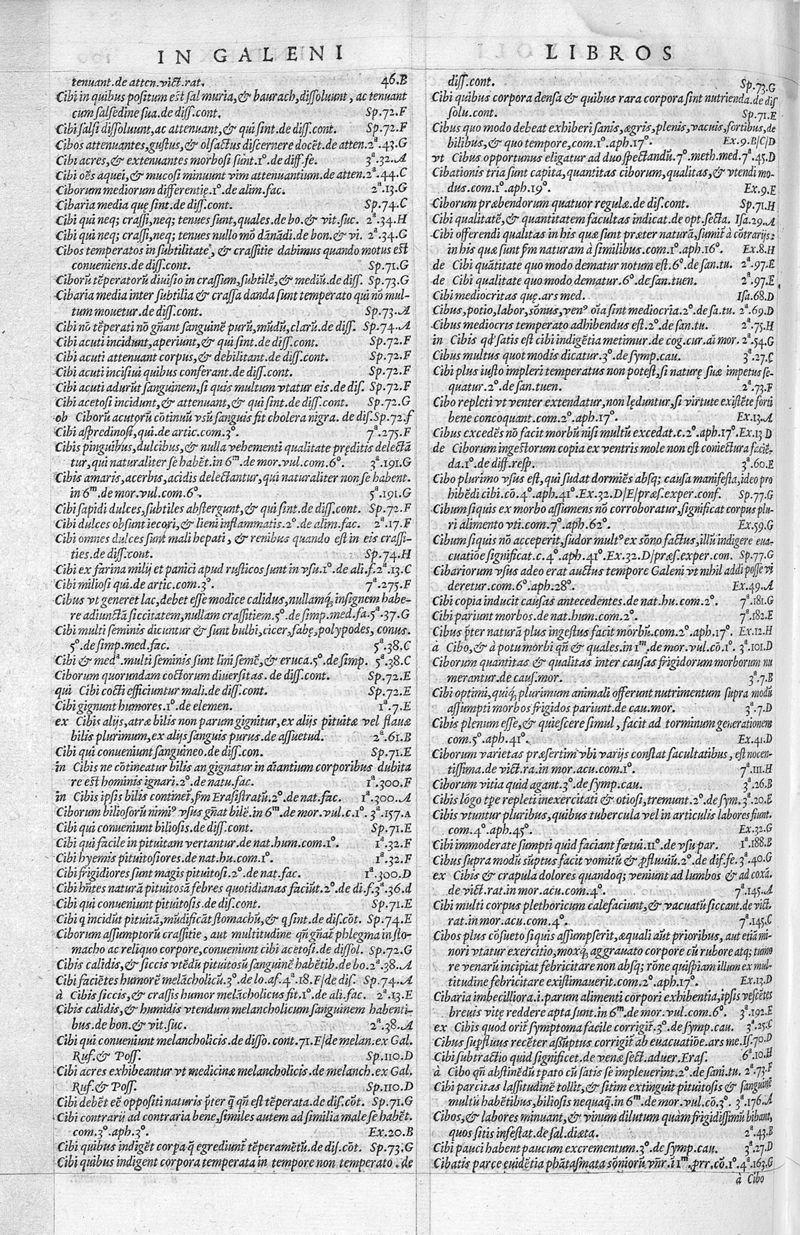 IN GALENI
tenuant.de atten.vict.rat. 46.B
Cibi in quibus positum est sal muria,& baurach,dissoluunt, ac tenuant
cum salsedine sua.de diss.cont. Sp.72.F
Cibi salsi dissoluunt,ac attenuant,& qui sint.de diss.cont. Sp.72.F
Cibos attenuantes,gustus,& olfactus discernere docēt.de atten.2ª.43.G
Cibi acres,& extenuantes morbosi sunt.1º.de diff.fe. 3ª.32.A
Cibi oēs aquei,& mucosi minuunt vim attenuantium.de atten.2ª.44.C
Ciborum mediorum differentię.1º.de alim.fac. 2ª.13.G
Cibaria media quę sint.de diss.cont. Sp.74.C
Cibi qui neq; crassi,neq; tenues sunt,quales.de bo.& vit.suc. 2ª.34.H
Cibi qui neq; crassi,neq; tenues nullo mō dānādi.de bon.& vi. 2ª.34.G
Cibos temperatos in subtilitate, & crassitie dabimus quando motus est
conueniens.de diss.cont. Sp.71.G
Ciborū tēperatorū diuisio in crassum,subtilē,& mediū.de diss. Sp.73.G
Cibaria media inter subtilia & crassa danda sunt temperato qui nō mul-
tum mouetur.de diss.cont. Sp.73.A
Cibi nō tēperati nō gñant sanguinē purū,mūdū,clarū.de diss. Sp.74.A
Cibi acuti incidunt,aperiunt,& qui sint.de diss.cont. Sp.72.F
Cibi acuti attenuant corpus,& debilitant.de diss.cont. Sp.72.F
Cibi acuti incisiui quibus conferant.de diss.cont. Sp.72.F
Cibi acuti adurūt sanguinem,si quis multum vtatur eis.de dis. Sp.72.F
Cibi acetosi incidunt,& attenuant,& qui sint.de diss.cont. Sp.72.G
ob Ciborū acutorū cōtinuū vsū sanguis fit cholera nigra. de dis.Sp.72.f
Cibi aspredinosi,qui.de artic.com.3º. 7ª.275.F
Cibis pinguibus,dulcibus,& nulla vehementi qualitate pręditis delectā
tur,qui naturaliter se habēt.in 6ᵐ.de mor.vul.com.6º. 3ª.191.G
Cibis amaris,acerbis,acidis delectantur,qui naturaliter non se habent.
in 6ᵐ.de mor.vul.com.6º. 5ª.191.G
Cibi sapidi dulces,subtiles abstergunt,& qui sint.de diss.cont. Sp.72.F
Cibi dulces obsunt iecori,& lieni inflammatis.2º.de alim.fac. 2ª.17.F
Cibi omnes dulces sunt mali hepati, & renibus quando est in eis crassi-
ties.de diss.cont. Sp.74.H
Cibi ex farina milij et panici apud rusticos sunt in vsu.1º.de ali.f.2ª.13.C
Cibi miliosi qui.de artic.com.3º. 7ª.275.F
Cibus vt generet lac,debet esse modice calidus,nullamq; insignem habe-
re adiunctā siccitatem,nullam crassitiem.5º.de simp.med.fa.5ª.37.G
Cibi multi seminis dicuntur & sunt bulbi,cicer,fabę,polypodes, conus.
5º.de simp.med.fac. 5ª.38.C
Cibi & medª.multi seminis sunt lini semē,& eruca.5º.de simp. 5ª.38.C
Ciborum quorundam coctorum diuersitas. de diss.cont. Sp.72.E
qui Cibi cocti efficiuntur mali.de diss.cont. Sp.72.E
Cibi gignunt humores.1º.de elemen. 1ª.7.E
ex Cibis alijs,atræ bilis non parum gignitur,ex alijs pituitæ vel flauæ
bilis plurimum,ex alijs sanguis purus.de assuetud. 2ª.61.B
Cibi qui conueniunt sanguineo.de diss.con. Sp.71.E
in Cibis ne cōtineatur bilis an gignatur in aīantium corporibus dubita
re est hominis ignari.2º.de natu.fac. 1ª.300.F
in Cibis ipsis bilis continet,ſm Erasistratū.2º.de nat.fac. 1ª.300.A
Ciborum biliosorū nimiº vsus gñat bilē.in 6ᵐ.de mor.vul.c.1º. 3ª.157.a
Cibi qui conueniunt biliosis.de diss.cont. Sp.71.E
Cibi qui facile in pituitam vertantur.de nat.hum.com.1º. 1ª.32.F
Cibi hyemis pituitosiores.de nat.hu.com.1º. 1ª.32.F
Cibi frigidiores sunt magis pituitosi.2º.de nat.fac. 1ª.300.D
Cibi hñtes naturā pituitosā febres quotidianas faciūt.2º.de di.f.3ª.36.d
Cibi qui conueniunt pituitosis.de diss.cont. Sp.71.E
Cibi q incidūt pituitā,mūdificāt stomachū,& q sint.de dis.cōt. Sp.74.E
Ciborum assumptorū crassitie, aut multitudine qñ gñat phlegma in sto-
macho ac reliquo corpore,conueniunt cibi acetosi.de dissol. Sp.72.G
Cibis calidis,& siccis vtēdū pituitosū sanguinē habētib.de bo.2ª.38.A
Cibi faciētes humorē melācholicū.3º.de lo.af.4ª.18.F|de dis. Sp.74.A
à Cibis siccis,& crassis humor melācholicus fit.1º.de ali.fac. 2ª.13.E
Cibis calidis,& humidis vtendum melancholicum sanguinem habenti-
bus.de bon.& vit.suc. 2ª.38.A
Cibi qui conueniunt melancholicis.de disso.cont.71.F|de melan.ex Gal.
Ruf.& Poss. Sp.110.D
Cibi acres exhibeantur vt medicinæ melancholicis.de melanch.ex Gal.
Ruf.& Poss. Sp.110.D
Cibi debēt eē oppositi naturis p̄ter q̄ qñ est tēperata.de dis.cōt. Sp.71.G
Cibi contrarij ad contraria bene,similes autem ad similia male se habēt.
com.3º.aph.3º. Ex.20.B
Cibi quibus indigēt corpa q̄ egrediunt tēperamētū.de dis.cōt. Sp.73.G
Cibi quibus indigent corpora temperata in tempore non temperato .de
LIBROS
diss.cont. Sp.73.G
Cibi quibus corpora densa & quibus rara corpora sint nutrienda.de dis
solu.cont. Sp.71.E
Cibus quo modo debeat exhiberi sanis,ægris,plenis,vacuis,fortibus,de
bilibus,& quo tempore,com.1º.aph.17º. Ex.9.B|C|D
vt Cibus opportunus eligatur ad duo spectandū.7º.meth.med.7ª.45.D
Cibationis tria sunt capita,quantitas ciborum,qualitas,& vtendi mo-
dus.com.1º.aph.19º. Ex.9.E
Ciborum præbendorum quatuor regulæ.de dis.cont. Sp.71.H
Cibi qualitatē,& quantitatem facultas indicat.de opt.secta. Isa.29.A
Cibi offerendi qualitas in his quæ sunt præter naturā,sumit à cōtrarijs:
in his quæ sunt ſm naturam à similibus.com.1º.aph.16º. Ex.8.H
de Cibi quātitate quo modo dematur notum est.6º.de san.tu. 2ª.97.E
de Cibi qualitate quo modo dematur.6º.de san.tuen. 2ª.97.E
Cibi mediocritas quę.ars med. Isa.68.D
Cibus,potio,labor,sōnus,venº oīa sint mediocria.2º.de sa.tu. 2ª.69.D
Cibus mediocris temperato adhibendus est.2º.de san.tu. 2ª.75.H
in Cibis qd satis est cibi indigētia metimur.de cog.cur.ai mor. 2ª.54.G
Cibus multus quot modis dicatur.3º.de symp.cau. 3ª.27.C
Cibi plus iusto impleri temperatus non potest,si naturę suæ impetus se-
quatur.2º.de san.tuen. 2ª.73.F
Cibo repleti vt venter extendatur,non lęduntur,si virtute existēte forti
bene concoquant.com.2º.aph.17º. Ex.13.A
Cibus excedēs nō facit morbū nisi multū excedat.c.2º.aph.17º.Ex.13 D
de Ciborum ingestorum copia ex ventris mole non est coniectura faciē-
da.1º.de diff.resp. 3ª.60.E
Cibo plurimo vsus est,qui sudat dormiēs absq; causa manifesta,ideo pro
hibēdi cibi.cō.4º.aph.41º.Ex.32.D|E|præs.exper.conf. Sp.77.G
Cibum siquis ex morbo assumens nō corroboratur,significat corpus plu-
ri alimento vti.com.7º.aph.62º. Ex.59.G
Cibum siquis nō acceperit,sudor multº ex sōno factus,illū indigere eua-
cuatiōe significat.c.4º.aph.41º.Ex.32.D|præs.exper.con. Sp.77.G
Cibariorum vsus adeo erat auctus tempore Galeni vt nihil addi posse vi
deretur.com.6º.aph.28º. Ex.49.A
Cibi copia inducit causas antecedentes.de nat.hu.com.2º. 7ª.181.G
Cibi pariunt morbos.de nat.hum.com.2º. 7ª.182.E
Cibus p̄ter naturā plus ingestus facit morbū.com.2º.aph.17º. Ex.12.H
à Cibo,& à potu morbi qñ & quales.in 1ᵐ.de mor.vul.cō.1º. 3ª.101.D
Ciborum quantitas & qualitas inter causas frigidorum morborum nu
merantur.de cau.mor. 3ª.7.B
Cibi optimi,quiq; plurimum animali offerunt nutrimentum supra modū
assumpti morbos frigidos pariunt.de cau.mor. 3ª.7.D
Cibis plenum esse,& quiescere simul,facit ad torminum generationem
com.5º.aph.41º. Ex.41.D
Ciborum varietas præsertim vbi varijs constat facultatibus, est nocen-
tissima.de vict.ra.in mor.acu.com.1º. 7ª.111.H
Ciborum vitia quid agant.3º.de symp.cau. 3ª.26.B
Cibis lōgo tpe repleti inexercitati & otiosi,tremunt.2º.de sym.3ª.20.E
Cibis vtuntur pluribus,quibus tubercula vel in articulis labores fiunt.
com.4º.aph.45º. Ex.32.G
Cibi immoderate sumpti quid faciant fœtui.11º.de vsu par. 1ª.188.B
Cibus supra modū sūptus facit vomitū & pfluuiū.2º.de dif.fe.3ª.40.G
ex Cibis & crapula dolores quandoq; veniunt ad lumbos & ad coxā.
de vict.rat.in mor.acu.com.4º. 7ª.145.A
Cibi multi corpus plethoricum calefaciunt,& vacuatū siccant.de vict.
rat.in mor.acu.com.4º. 7ª.145.C
Cibos plus cōsueto siquis assumpserit,æquali aūt prioribus, aut etiā mi-
nori vtatur exercitio,moxq; aggrauato corpore cū rubore atq; tumo
re venarū incipiat febricitare non absq; rōne quispiam illum ex mul-
titudine febricitare existimauerit.com.2º.aph.17º. Ex.13.D
Cibaria imbecilliora.i.parum alimenti corpori exhibentia,ipsis vescētes
breuis vitę reddere apta sunt.in 6ᵐ.de mor.vul.com.6º. 3ª.192.E
ex Cibis quod orit symptoma facile corrigit.3º.de symp.cau. 3ª.25.C
Cibus supfluus recēter assūptus corrigit ab euacuatiōe.ars me.Is.70.D
Cibi subtractio quid significet.de venæ sect.aduer.Eras. 6ª.10.H
à Cibo qñ abstinēdū tpato cū satis se impleuerint.2º.de sani.tu. 2ª.73.F
Cibi parcitas lassitudinē tollit,& sitim extinguit pituitosis & sanguinē
multū habētibus,biliosis nequaq̄.in 6ᵐ.de mor.vul.cō.3º. 3ª.176.A
Cibos,& labores minuant,& vinum dilutum quàm frigidissimū bibant,
quos sitis infestat.de sal.diæta. 2ª.43.B
Cibi pauci habent paucum excrementum.3º.de symp.cau. 3ª.27.D
Cibatis parce euidētia phātasmata sōniorū vñr.ī 1ᵐ.prr.cō.1º.4ª.163.G
à Cibo